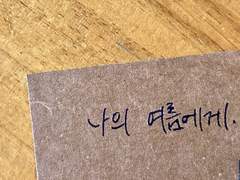 나의 여름에게.